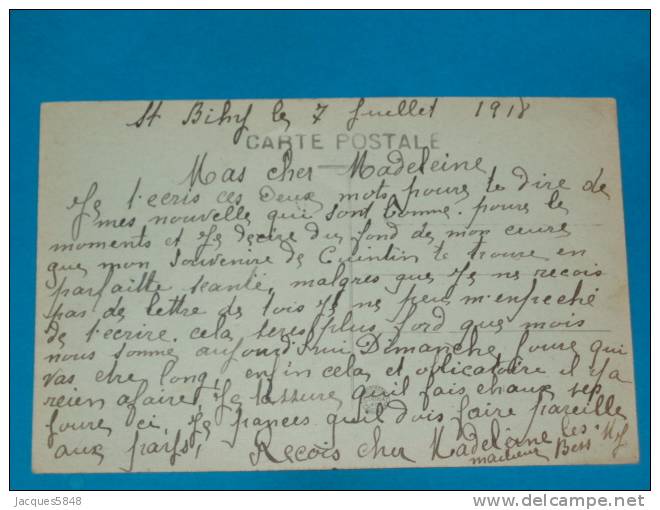 St Bihy le 7 Juillet 1918
CARTE POSTALE
Mas cher Madeleine
Je t'ecris ces deux mots pour te dire de
mes nouvelle qui sont bonne. pour le
moments et Je decire du fond de mon ceure
que mon souvenire de Quintin te trouve en
parfaitte santé, malgres que Je ne recois
pas de lettre de tois Je ne peu m'enpeché
de t'ecrire. cela seres plus ford que mois
nous somme aujourd'hui Dimanche Joure qui
vas etre long, enfin cela et oblicatoire il ya
reien afaire, Je t'assure qu'il fais chaux ses
Joure ci, Je pances qu'il dois faire pareille
aux pays,
Recois cher Madeleine les
Bess
Jacques5848
delcampe.net